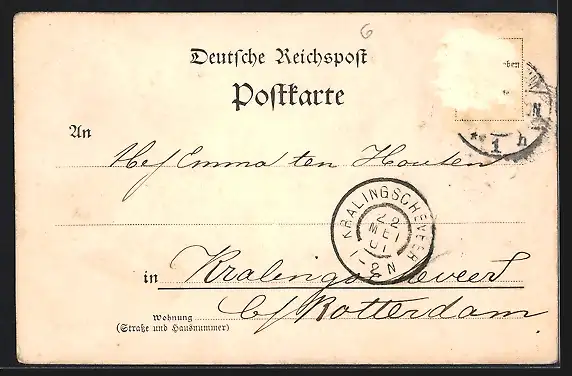 6
Deutsche Reichspost
Postkarte
ben
N
* 1 h
An
Mej Emma ten Houten
KRALINGSCHEVEER
22
MEI
01
1-2N
in Kralingscheveer
b/ Rotterdam
Wohnung
(Straße und Hausnummer)